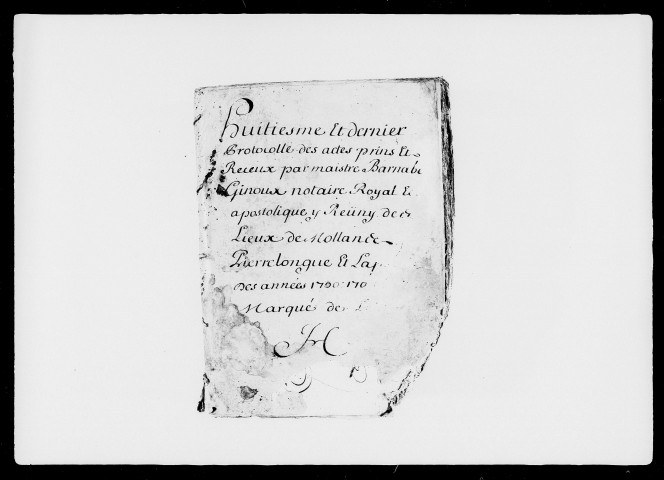 Huitiesme Et dernier
Protocolle des actes prins Et
Receux par maistre Barnabe
Ginoux notaire Royal Et
apostolique y Reüny de
Lieux de Mollans
Pierrelongue Et
Des années 1700 170
Marqué de